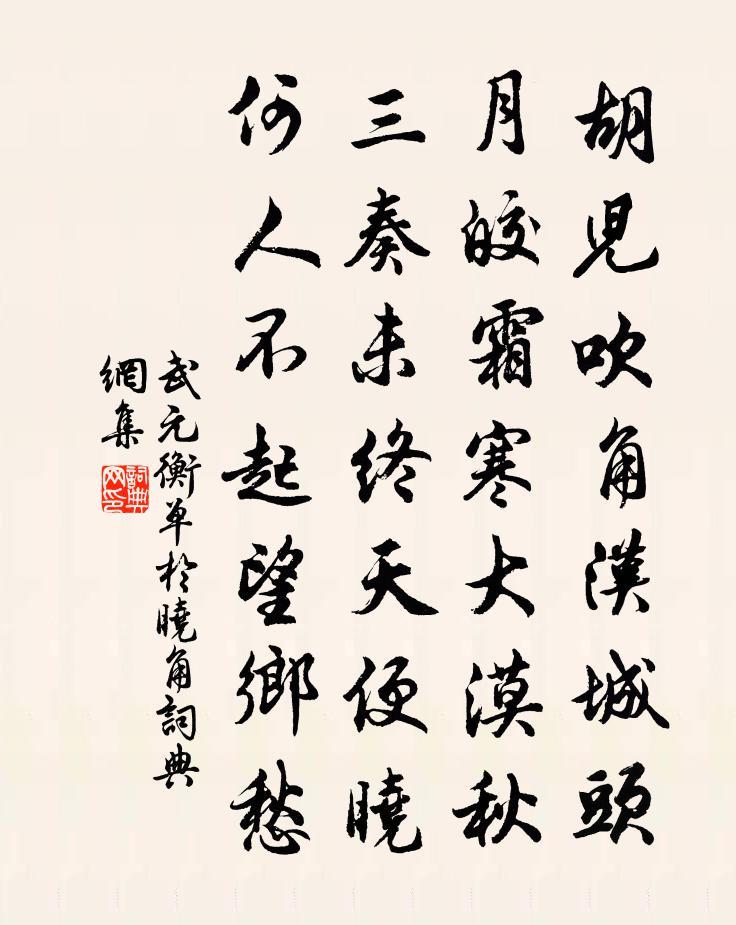 胡兒吹角漢城頭
月皎霜寒大漠秋
三奏未終天便曉
何人不起望鄉愁
武元衡单於曉角詞典
網集
詞典
网印